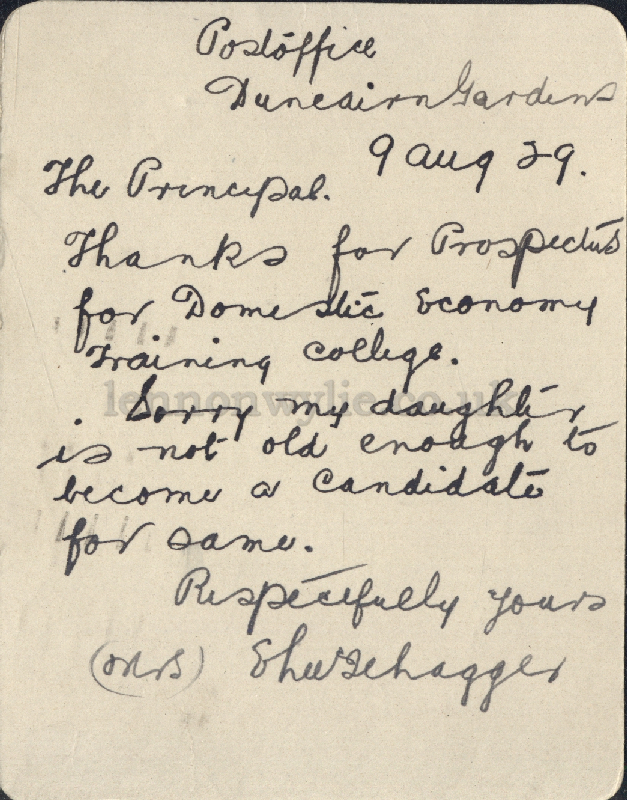 Postoffice
Duncairn Gardens
9 Aug 29.
The Principal.
Thanks for Prospectus
for Domestic Economy
Training College.
lennonwylie.co.uk
Sorry my daughter
is not old enough to
become a candidate
for same.
Respectfully yours
(Mrs)